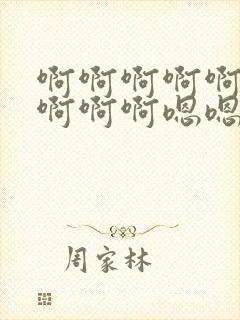 啊啊啊啊啊
啊啊啊嗯嗯
周家林